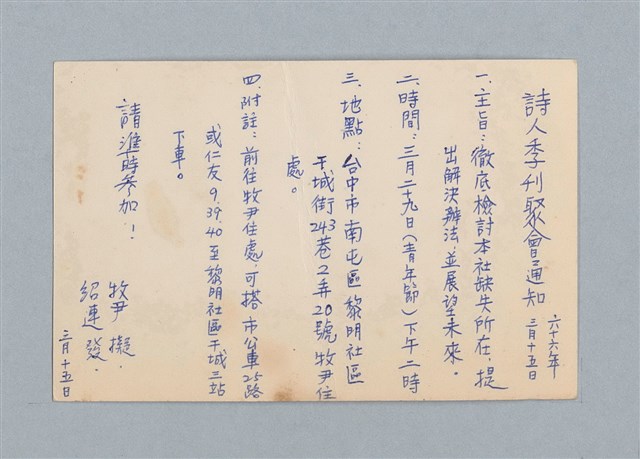 詩人季刊聚會通知
六十六年
三月十五日
一、主旨：徹底檢討本社缺失所在，提
出解決辦法，並展望未來。
二、時間：三月二十九日（青年節）下午二時
三、地點：台中市南屯區黎明社區
干城街243巷2弄20號牧尹住
處。
四、附註：前往牧尹住處，可搭市公車25路
或仁友9.39.40至黎明社區干城三站
下車。
請準時參加！
牧尹 擬．
紹連 發．
三月十五日